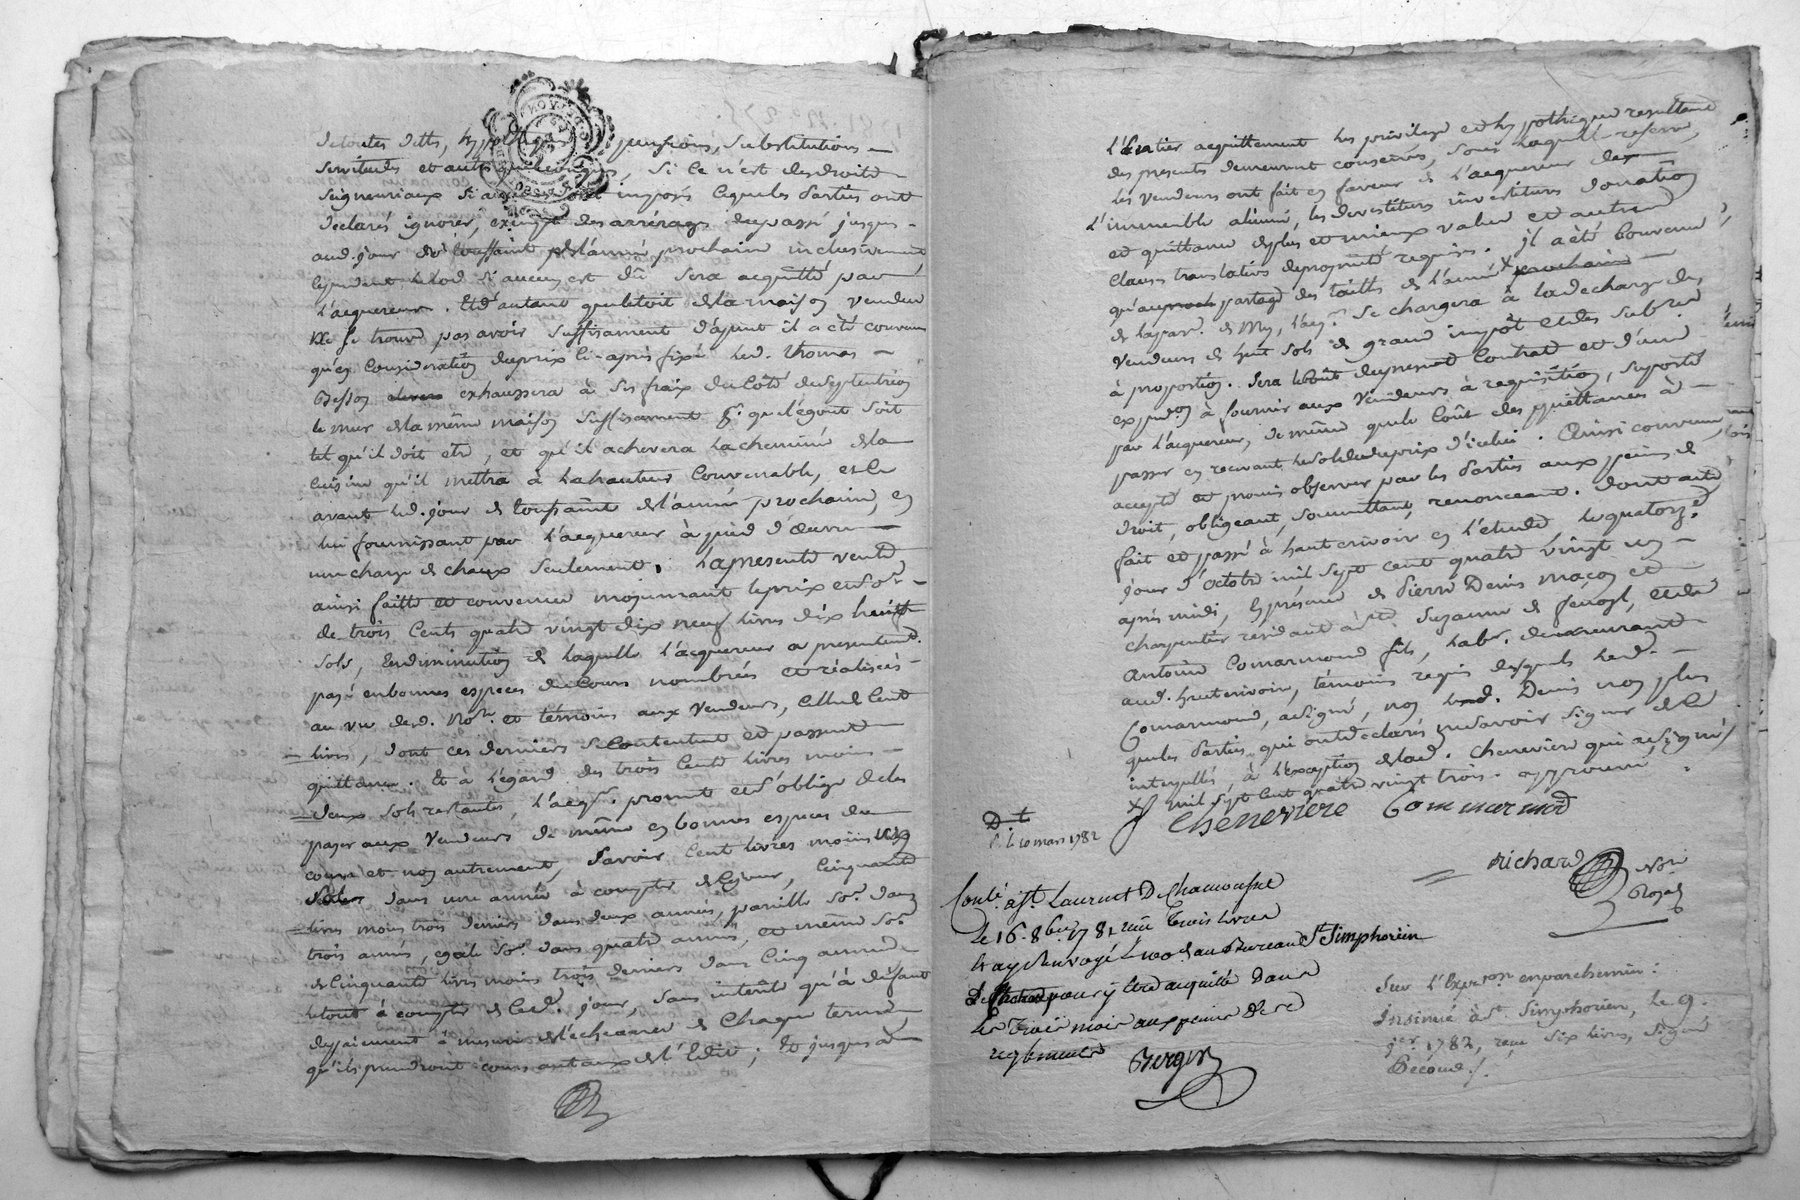 de toutes dettes, hypotheques pensions, substitutions
servitudes et autres quelconques, si ce n'est des droits
seigneuriaux si aucuns sont imposés lequeles parties ont
declarés ignorer, exempte des arrérages du passé jusques
aud. jour de toussaint de l'année prochaine inclusivement
cependant le lod si aucun est dû sera acquitté par
l'acquereur. Et d'autant que le toit de la maison vendue
ne se trouve pas avoir suffisament d'ajout il a été convenu
qu'en consideration du prix ci-après fixé led. thomas
Besson exhaussera à ses fraix du côté du septentrion
le mur de la même maison suffisament pr. que l'égout soit
tel qu'il doit etre, et qu'il achevera la cheminée de la
cuisine qu'il mettra à la hauteur convenable, et ce
avant led. jour de toussaint de l'année prochaine, en
lui fournissant par l'acquereur à pied d'œuvre
une charge de chaux seulement. La presente vente
ainsi faitte et convenue moyennant le prix et so.e
de trois cents quatre vingt dix neuf livres dix huit
sols, en diminution de laquelle l'acquereur a presentemt.
payé en bonnes especes du cours nombrées et réalisées
au vu dud. Nore. et témoins aux vendeurs, celle de cent
livres, dont ces derniers se contentent et passent
quittance. Et à l'égard des trois cents livres moins
deux sols restantes, l'acqr. promet et s'oblige de les
payer aux vendeurs de même en bonnes especes du
cours et non autrement, savoir cent livres moins
dans une année à compter de ce jour, cinquante
livres moins trois deniers dans deux années, pareille so.e dans
trois années, egale so.e dans quatre années, et même so.e
de cinquante livres moins trois deniers dans cinq années
le tout à compter de ced. jour, sans interêt qu'à défaut
de paiement à mesure de l'écheance de chaque terme
qu'ils prendront cours au taux de l'Edit; Et jusques à
l'Entier acquittement les privilege et hypotheque resultant
des presentes demeurent conservés, sous laquelle reserve
les vendeurs ont fait en faveur de l'acquereur de
l'immeuble aliéné, les devestiture investiture donation
et quittance de plus et mieux value et autres
clauses translatives de propriété requises. Il a été convenu
qu'au partage des tailles de l'année X prochaine
de la par. de Mey, l'acqr. se chargera à la decharge des
vendeurs de huit sols de grand impôt et des subres
à proportion. Sera le coût du present contrat et d'une
expedon. à fournir aux vendeurs à requisition, suporté
par l'acquereur, de même que le coût des quittances à
passer en recevant le solde du prix d'icelui. Ainsi convenu,
accepté et promis observer par les parties aux peines de
droit, obligeant, soumettant, renonceant. Dont acte
fait et passé à hauterivoire en l'etude le quatorze.
jour d'octobre mil sept cent quatre vingt un
après midi, En présence de Pierre Denis maçon et
charpentier residant à Ste Suzanne de fenoyl, et de
Antoine Comarmond fils, labr. demeurant
aud. hauterivoire, témoins requis desquels led.
Comarmond, a signé, non led. Denis non plus
que les parties qui ont declarés ne savoir signer de ce
interpellés à l'exception de lad. Cheneviere qui a signé
X mil sept cent quatre vingt trois. approuvé
Cheneviere Commarmond
richard Nore.
Royal
D.t
le 10 mars 1782
Contlé. à St. Laurent De Chamousset
le 16. 8bre 1781 reçu trois livres
et ay renvoyé au Bureau St Simphorien
pour y etre acquitté dans
les trois mois aux peines des
reglements
Berger
sur l'Expeon. en parchemin:
Insinué à St. Simphorien, le 9.
jer. 1782, reçu six livres, signé
Second./.